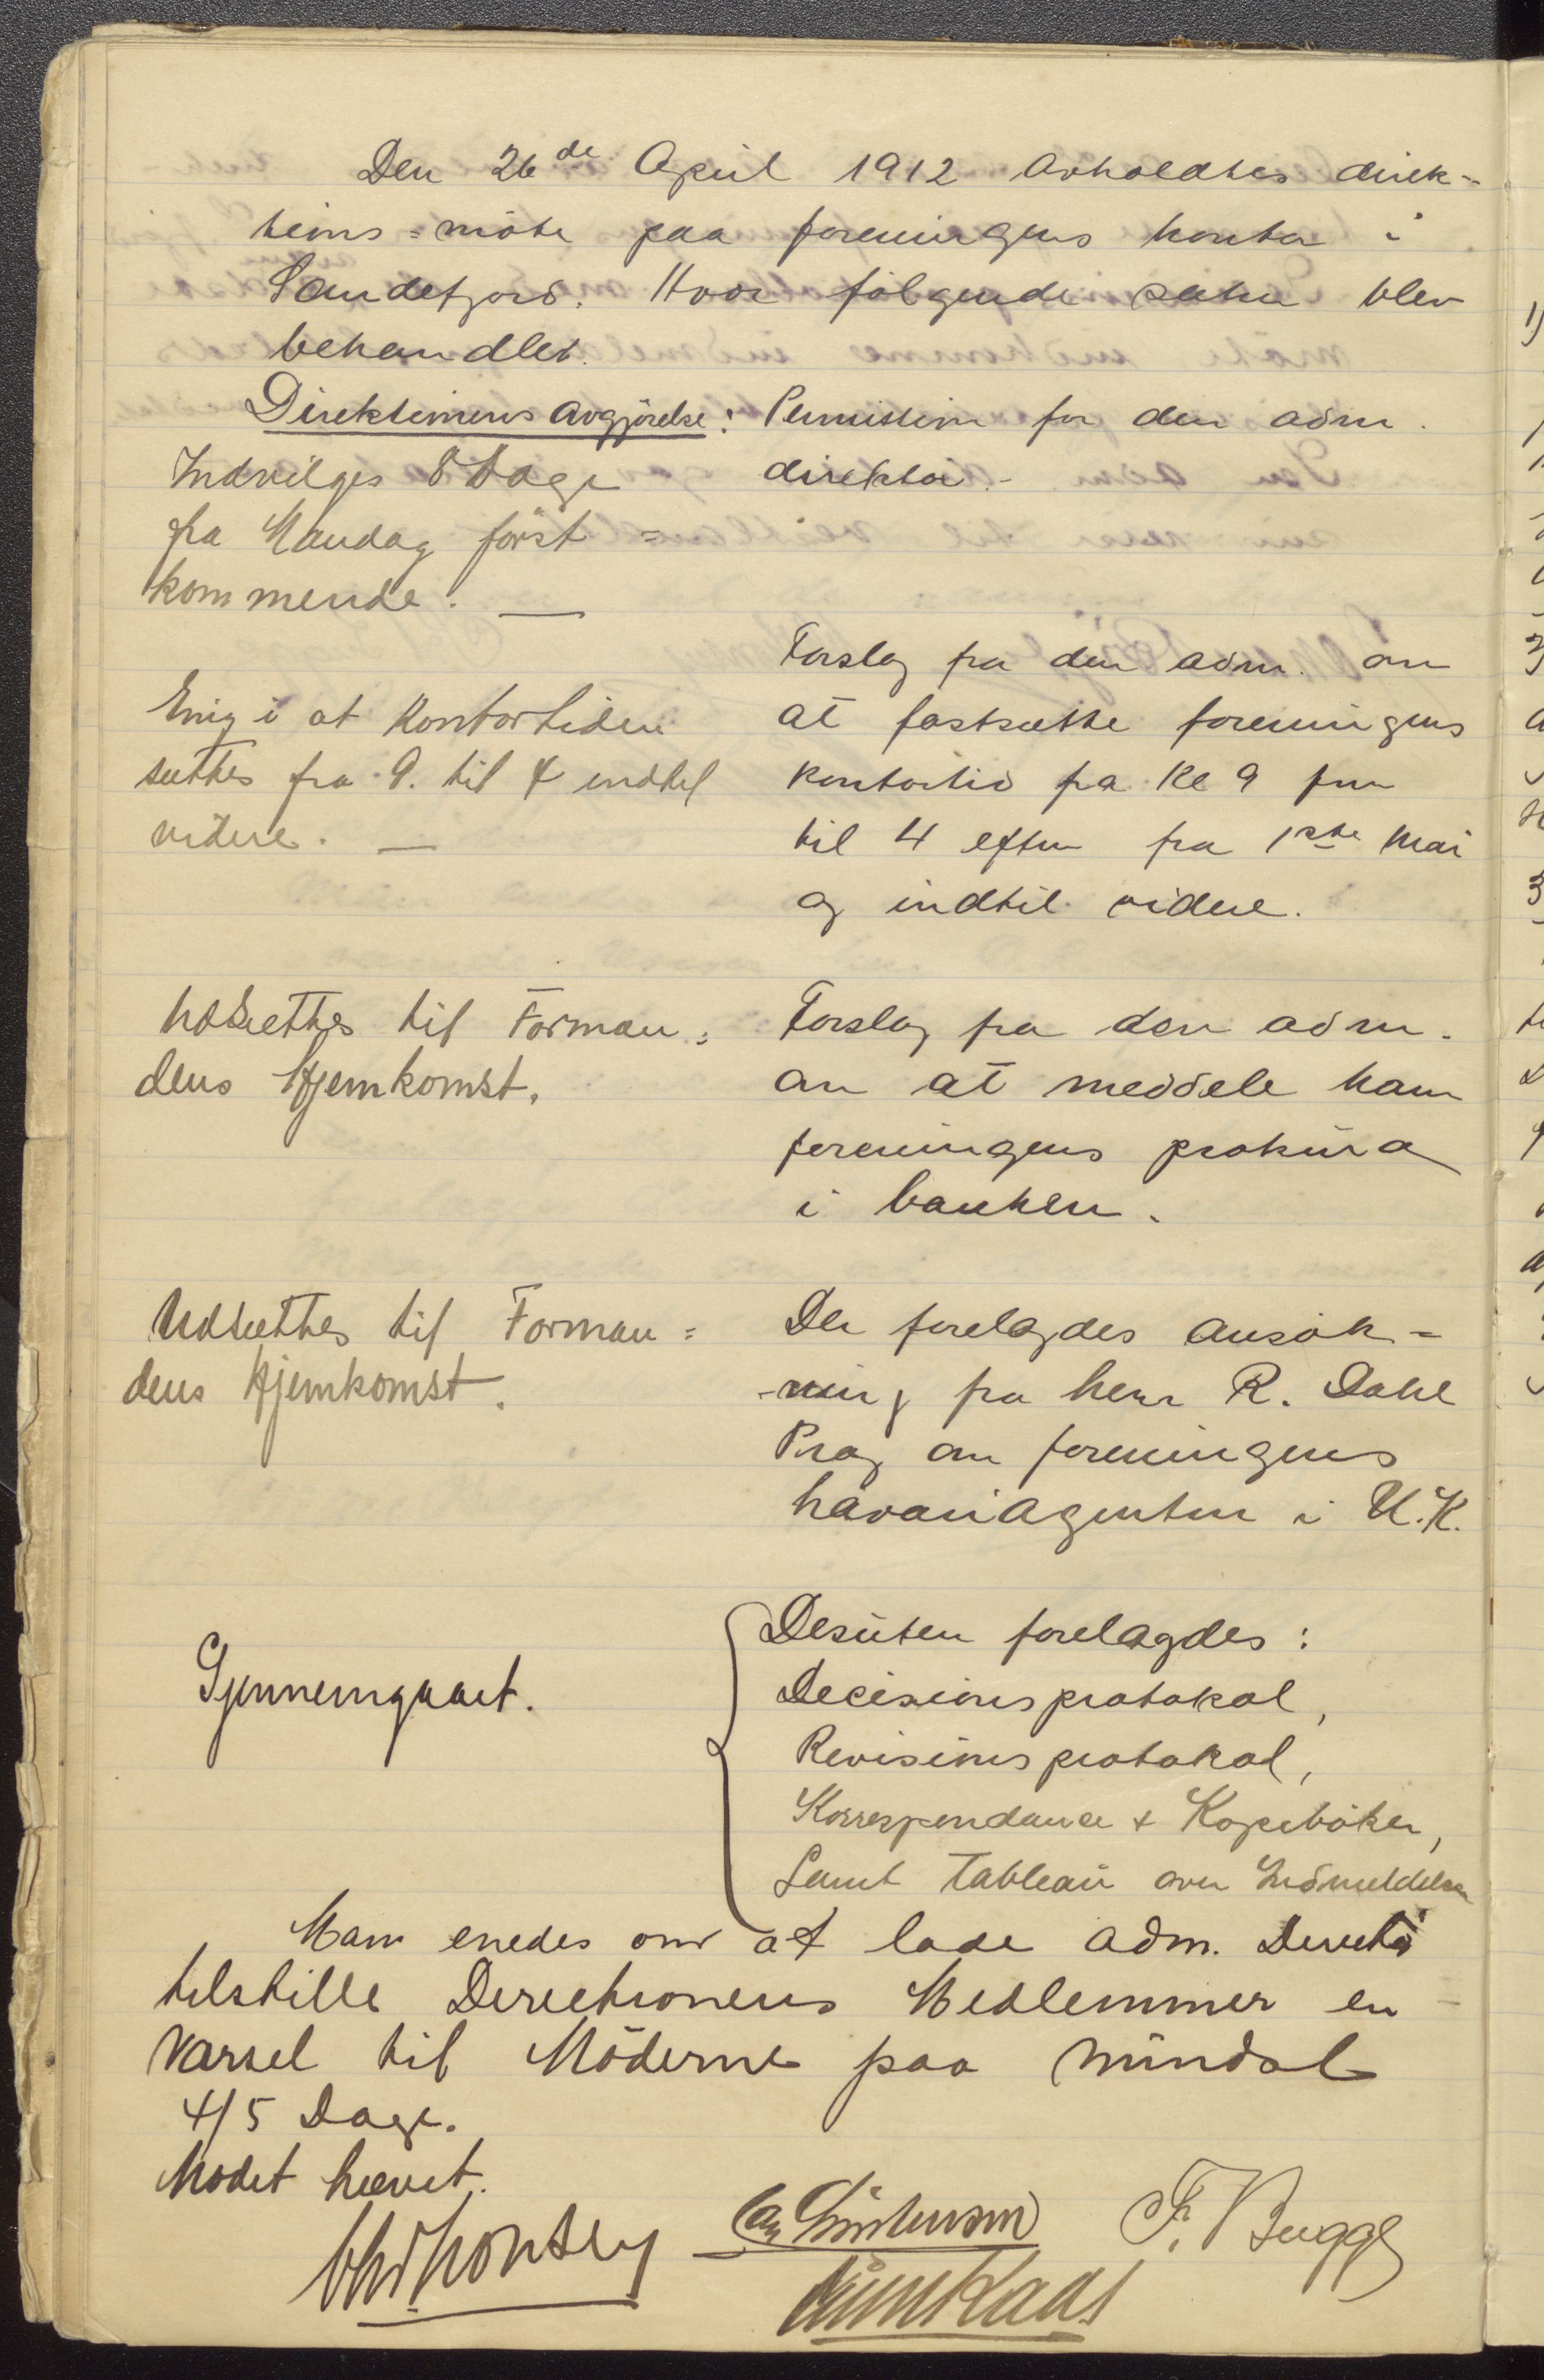 Den 26de April 1912 avholdtes direk-
tions=möte paa foreningens kontor i
Sandefjord. Hvor følgende saker blev
behandlet.
Direktionens avgjörelse:
Indvilges 8 Dage
fra Mandag först=
kommende. —
Permission for den adm.
direktør.-
Enig i at Kontortiden
sættes fra 9. til 4 indtil
videre. —
Forslag fra den adm. om
at fastsætte foreningens
kontortid fra Kl 9 fm
til 4 efterm fra 1ste Mai
og indtil videre.
Udsættes til Forman=
dens Hjemkomst.
Forslag fra den adm.
om at meddele ham
foreningens prokura
i banken.
Udsættes til Forman=
dens Hjemkomst.
Der forelagdes ansök=
-ning fra herr R. Dahl
Prag om foreningens
havariagentur i U.K.
Gjennemgaaet.
Desuten forelagdes:
Decisionsprotokol,
Revisionsprotokol,
Korrespondance & Kopibøker,
Samt Tableau over Indmeldelser
Man enedes om at lade adm. Direktö
tilstille Directionens Medlemmer en
Varsel til Möderne paa mindst
4/5 Dage.
Mødet hævet.
F. Bugge